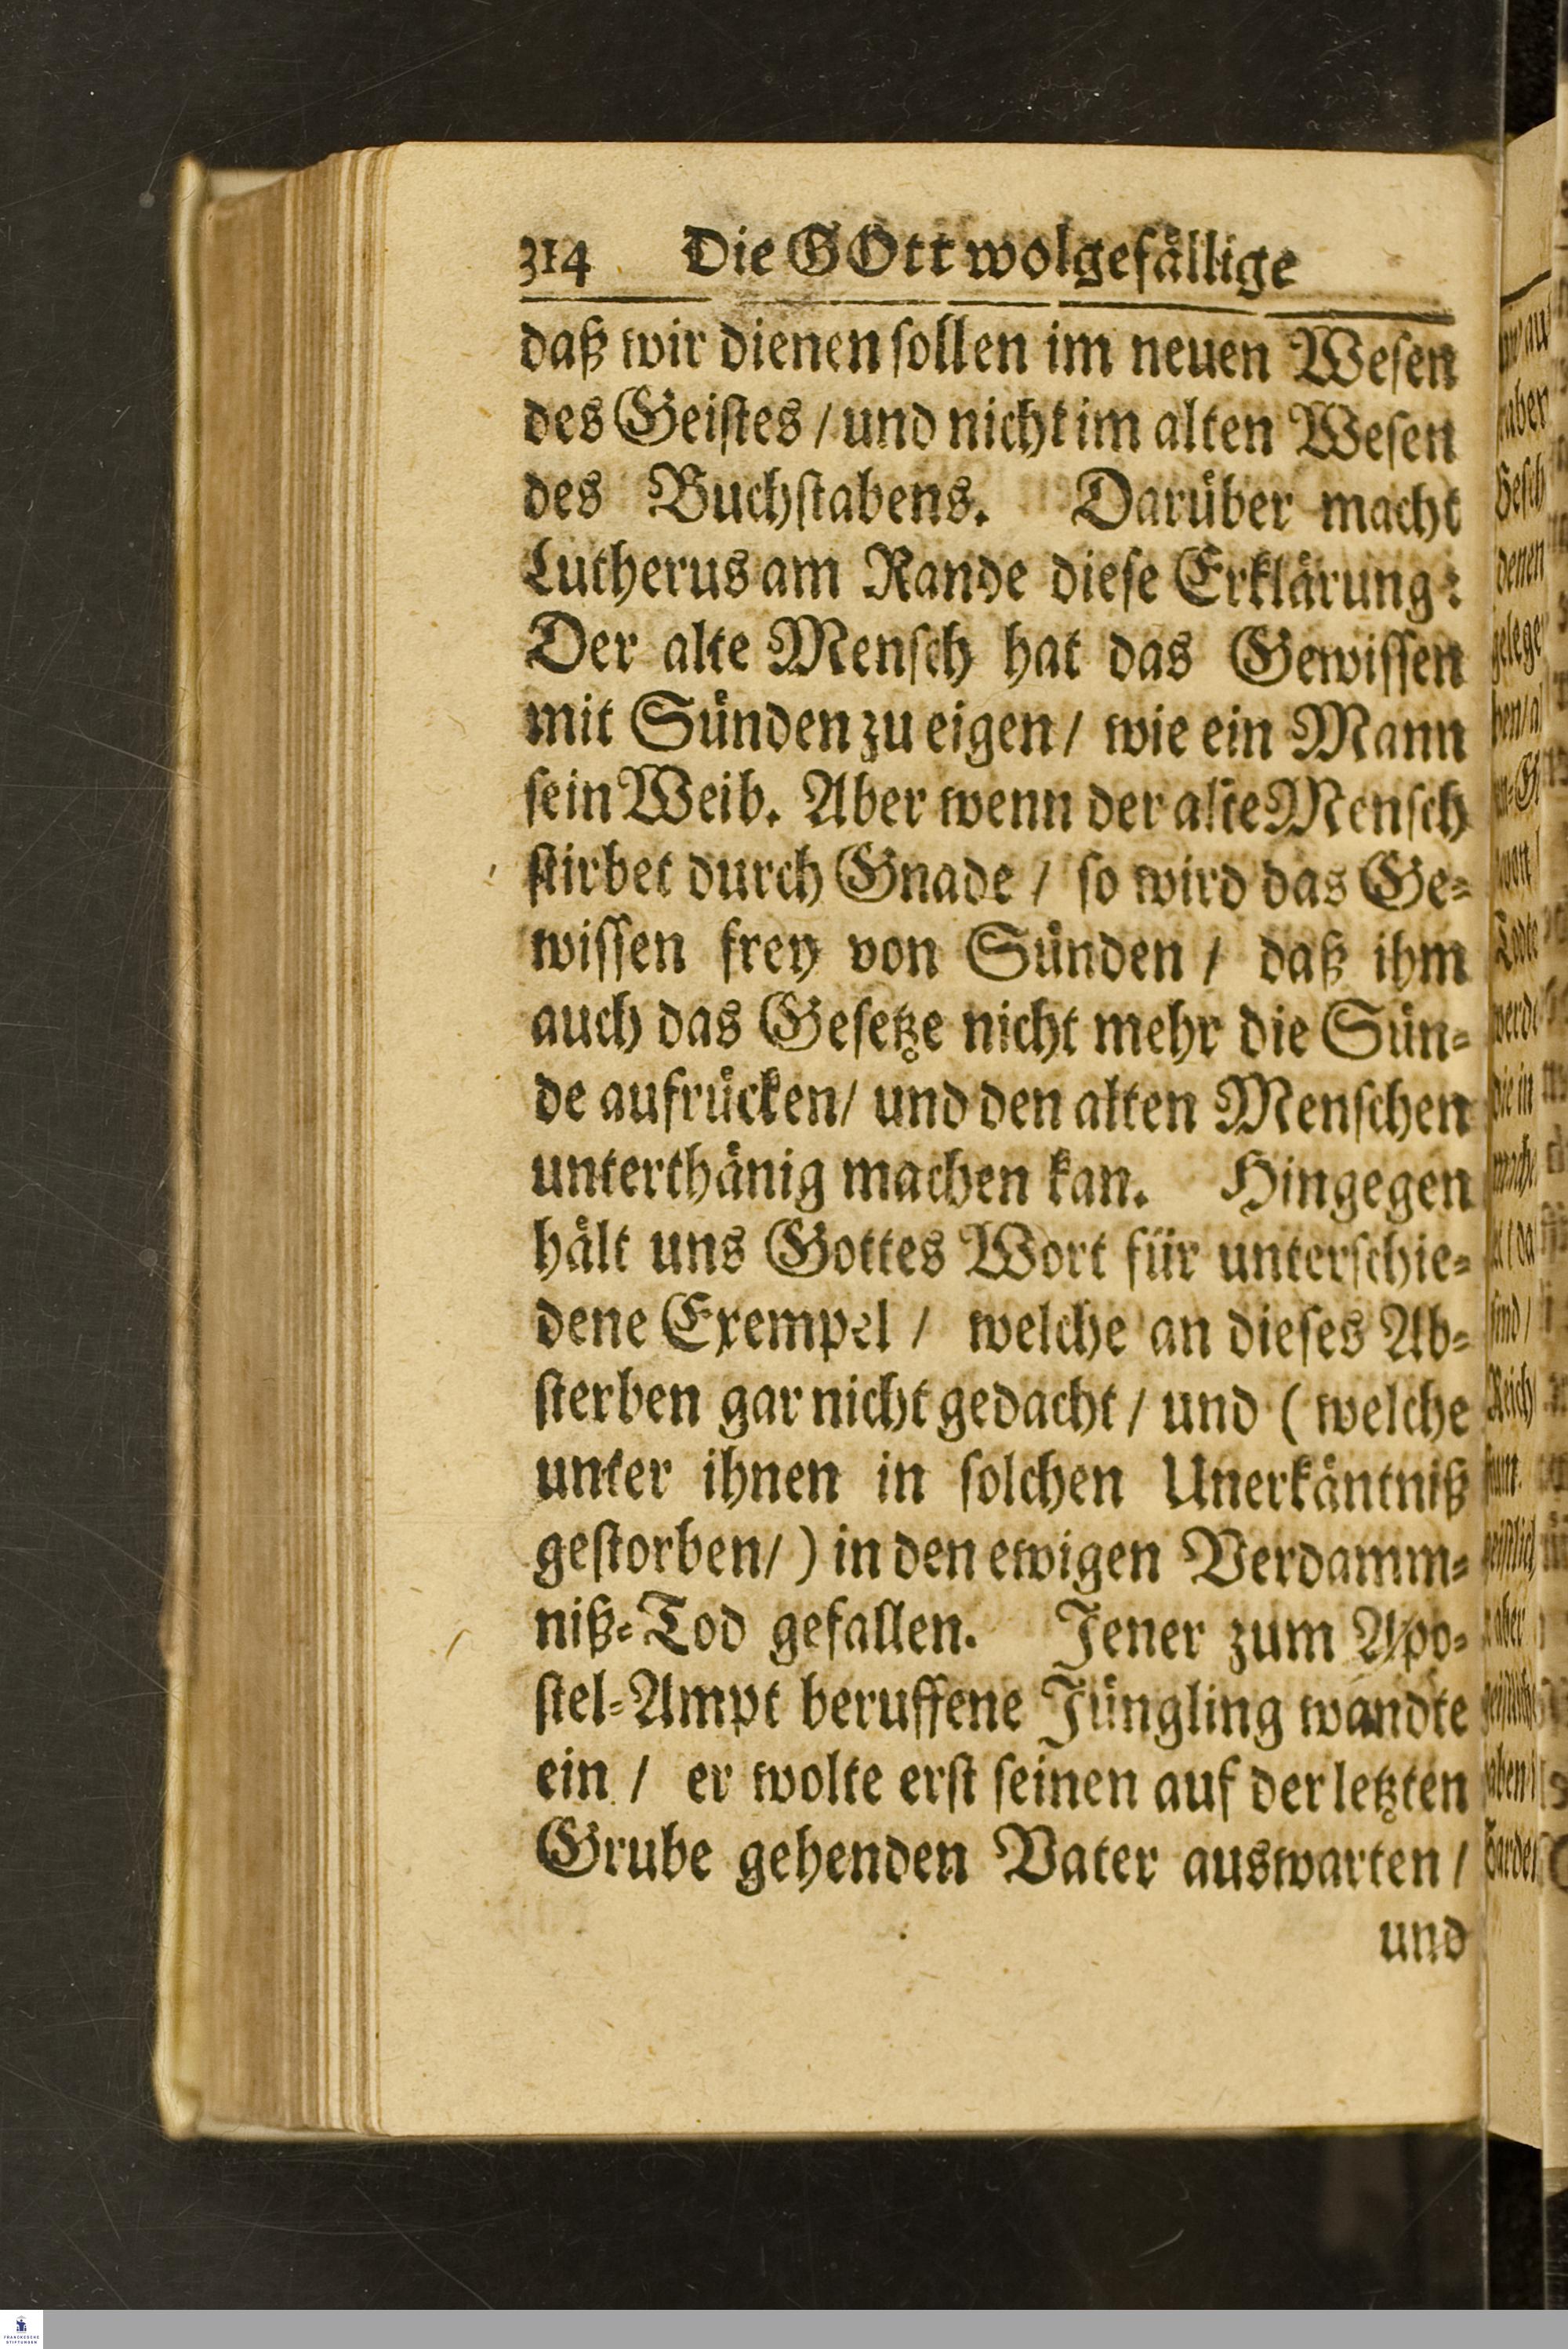 314 Die GOtt wolgefällige
daß wir dienen sollen im neuen Wesen
des Geistes / und nicht im alten Wesen
des Buchstabens. Darüber macht
Lutherus am Rande diese Erklärung:
Der alte Mensch hat das Gewissen
mit Sünden zu eigen / wie ein Mann
sein Weib. Aber wenn der alte Mensch
stirbet durch Gnade / so wird das Ge-
wissen frey von Sünden / daß ihm
auch das Gesetze nicht mehr die Sün-
de aufrücken / und den alten Menschen
unterthänig machen kan. Hingegen
hält uns Gottes Wort für unterschie-
dene Exempel / welche an dieses Ab-
sterben gar nicht gedacht / und ( welche
unter ihnen in solchen Unerkäntniß
gestorben / ) in den ewigen Verdamm-
niß-Tod gefallen. Jener zum Apo-
stel-Ampt beruffene Jüngling wandte
ein / er wolte erst seinen auf der letzten
Grube gehenden Vater auswarten /
und
FRANCKESCHE
STIFTUNGEN